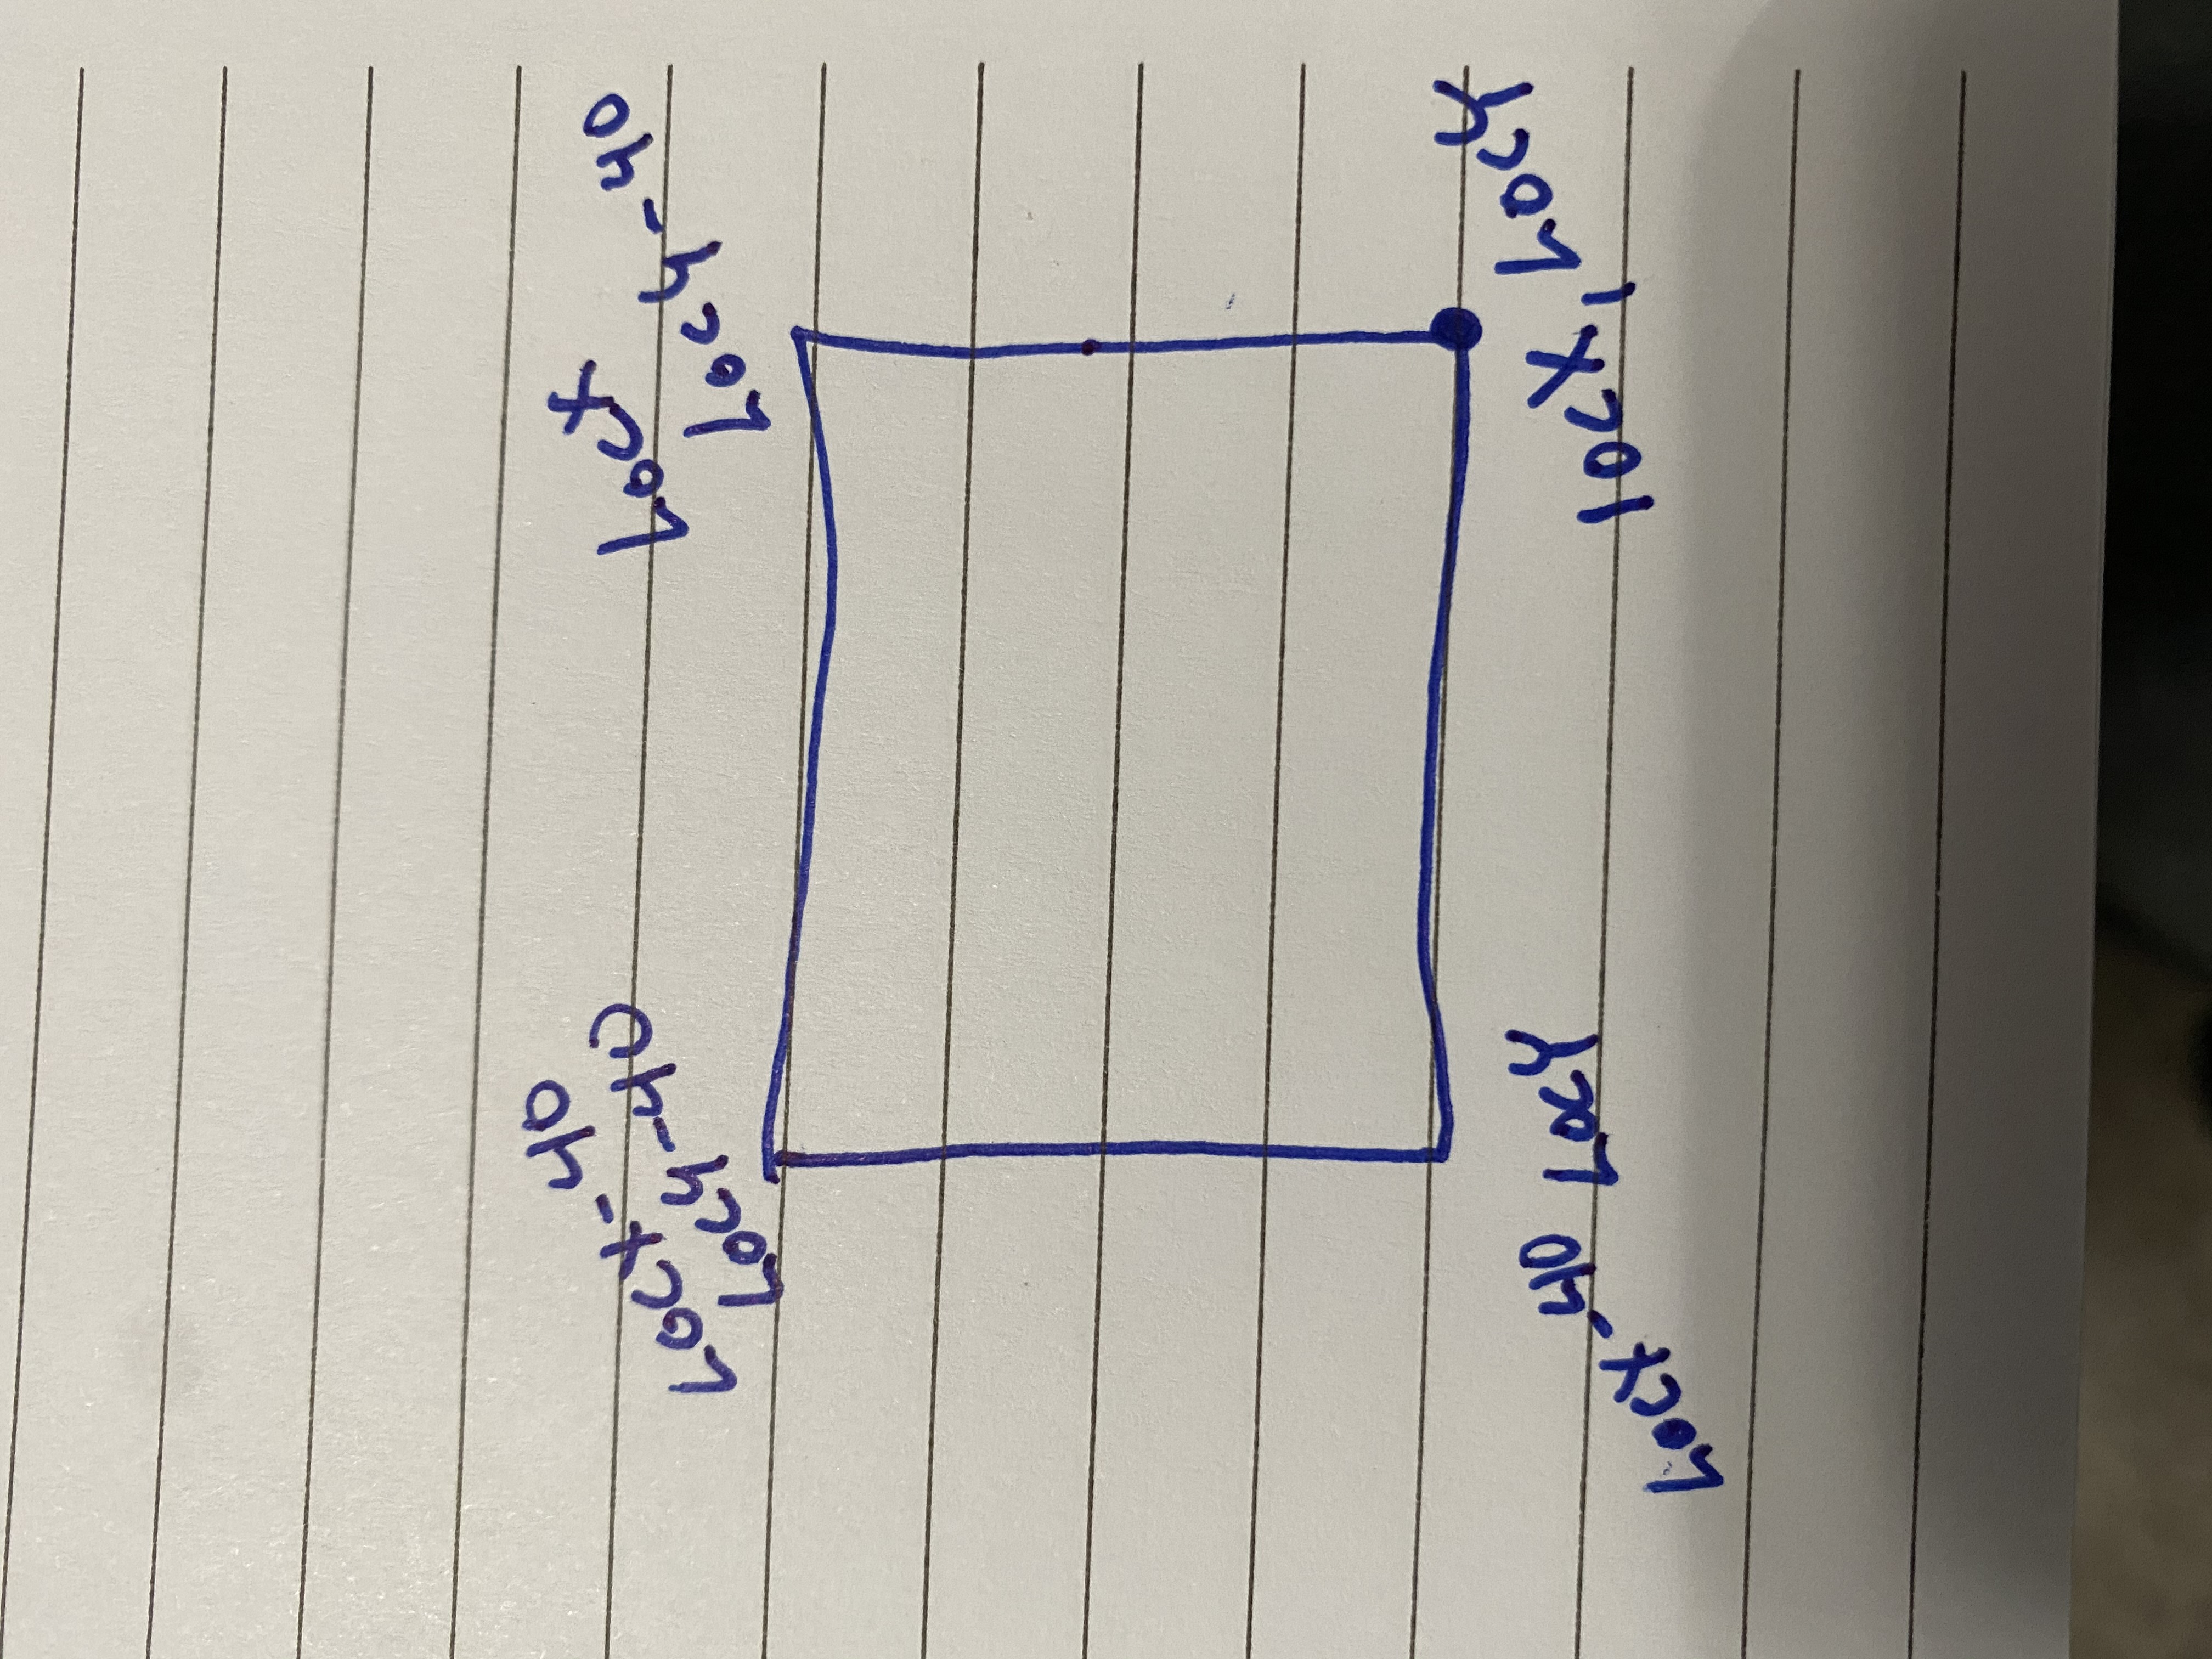 LOCX-40
LOCY-40
LOCX
LOCY-40
LOCX-40 LOCY
locX, LOCY